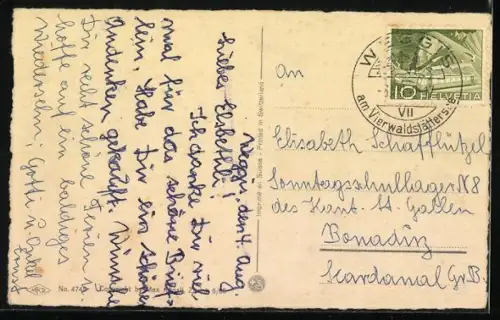 Weggis, den 4. Aug.
Liebes Elsbethli!
Ich danke Dir viel
mal für das schöne Brief-
lein. Habe Dir ein schönes
Andenken gekauft. Wünsche
Dir recht schöne Ferien u.
hoffe auf ein baldiges
Wiedersehn. Gotti u. Götti
Ernst
No. 474
Copyright by
Imprimé en Suisse - Printed in Switzerland
An
WEGGIS
VII
am Vierwaldstättersee
10 HELVETIA
Elisabeth Schafflützel
Sonntagsschullager N8
des Kant. St. Gallen
Bonaduz
Scardanal Gr.B.